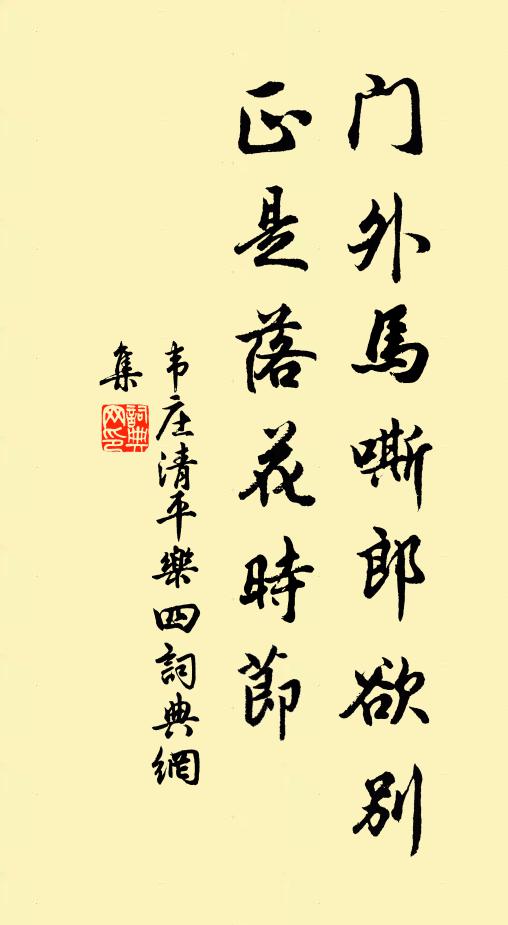 门外馬嘶郎欲别
正是落花時節
韦庄清平樂四詞典網
集
詞典网印